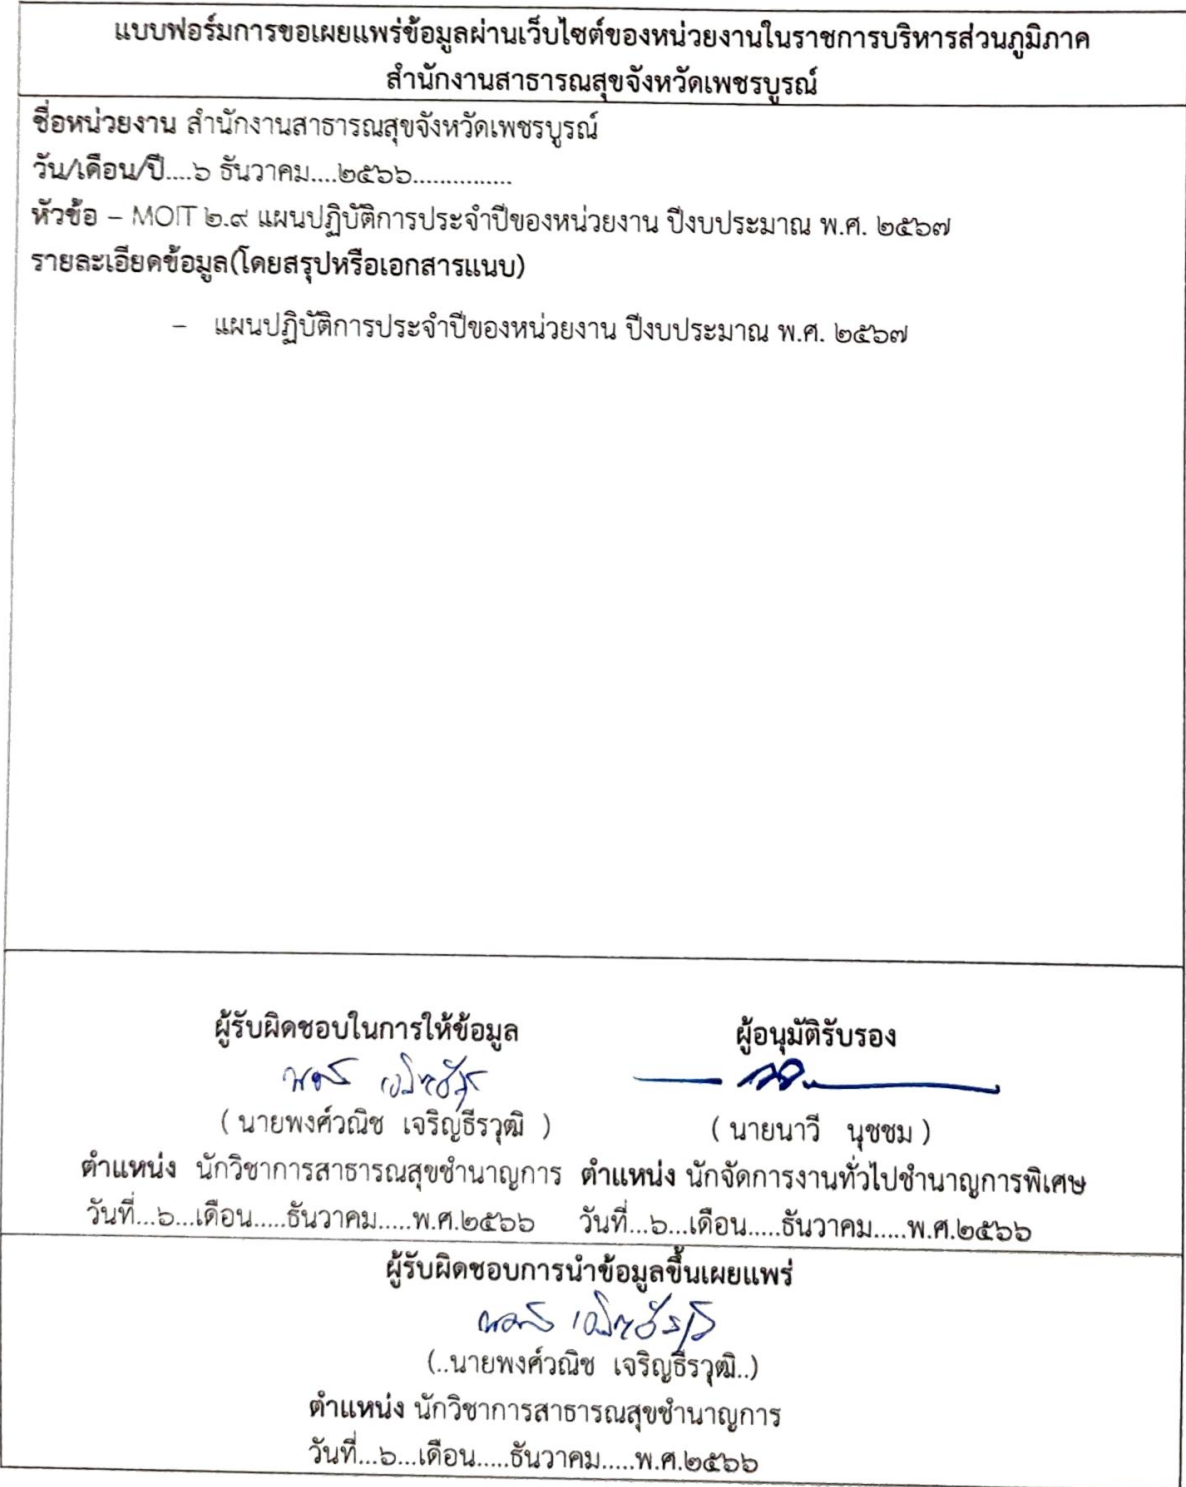 แบบฟอร์มการขอเผยแพร่ข้อมูลผ่านเว็บไซต์ของหน่วยงานในราชการบริหารส่วนภูมิภาค
สำนักงานสาธารณสุขจังหวัดเพชรบูรณ์
ชื่อหน่วยงาน สำนักงานสาธารณสุขจังหวัดเพชรบูรณ์
วัน/เดือน/ปี....๖ ธันวาคม....๒๕๖๖...............
หัวข้อ – MOIT ๒.๙ แผนปฏิบัติการประจำปีของหน่วยงาน ปีงบประมาณ พ.ศ. ๒๕๖๗
รายละเอียดข้อมูล(โดยสรุปหรือเอกสารแนบ)
– แผนปฏิบัติการประจำปีของหน่วยงาน ปีงบประมาณ พ.ศ. ๒๕๖๗
ผู้รับผิดชอบในการให้ข้อมูล ผู้อนุมัติรับรอง
( นายพงศ์วณิช เจริญธีรวุฒิ ) ( นายนาวี นุชชม )
ตำแหน่ง นักวิชาการสาธารณสุขชำนาญการ ตำแหน่ง นักจัดการงานทั่วไปชำนาญการพิเศษ
วันที่...๖...เดือน.....ธันวาคม.....พ.ศ.๒๕๖๖ วันที่...๖...เดือน.....ธันวาคม.....พ.ศ.๒๕๖๖
ผู้รับผิดชอบการนำข้อมูลขึ้นเผยแพร่
(..นายพงศ์วณิช เจริญธีรวุฒิ..)
ตำแหน่ง นักวิชาการสาธารณสุขชำนาญการ
วันที่...๖...เดือน.....ธันวาคม.....พ.ศ.๒๕๖๖